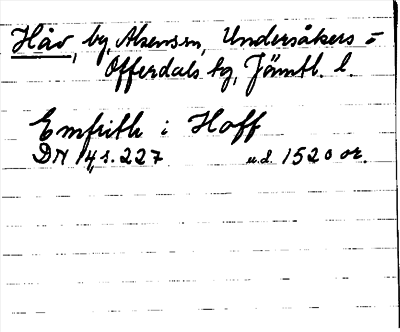 Håv, by, Alsensn, Undersåkers =
Offerdals tg, Jämtl. l.
Emfrith i Hoff
DN 14, s. 227 u.d. 1520 or.